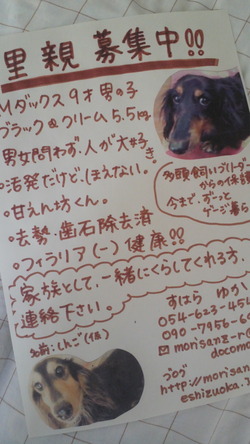 里親募集中!!
Mダックス 9才 男の子
ブラック&クリーム 5.5kg
男女問わず、人が大好き
・活発だけど、ほえない。
・甘えん坊くん。
・去勢・歯石除去済
・フィラリア(ー)健康!!
多頭飼いブリーダー
からの保護
今まで、ずーっと
ゲージ暮ら
家族として、一緒にくらしてくれる方、
連絡下さい。
名前:しんご(仮)
すはら ゆか
054-623-45
090-7956-6
morisanz-r
docomo
ブログ
http://morisan
eshizuoka.